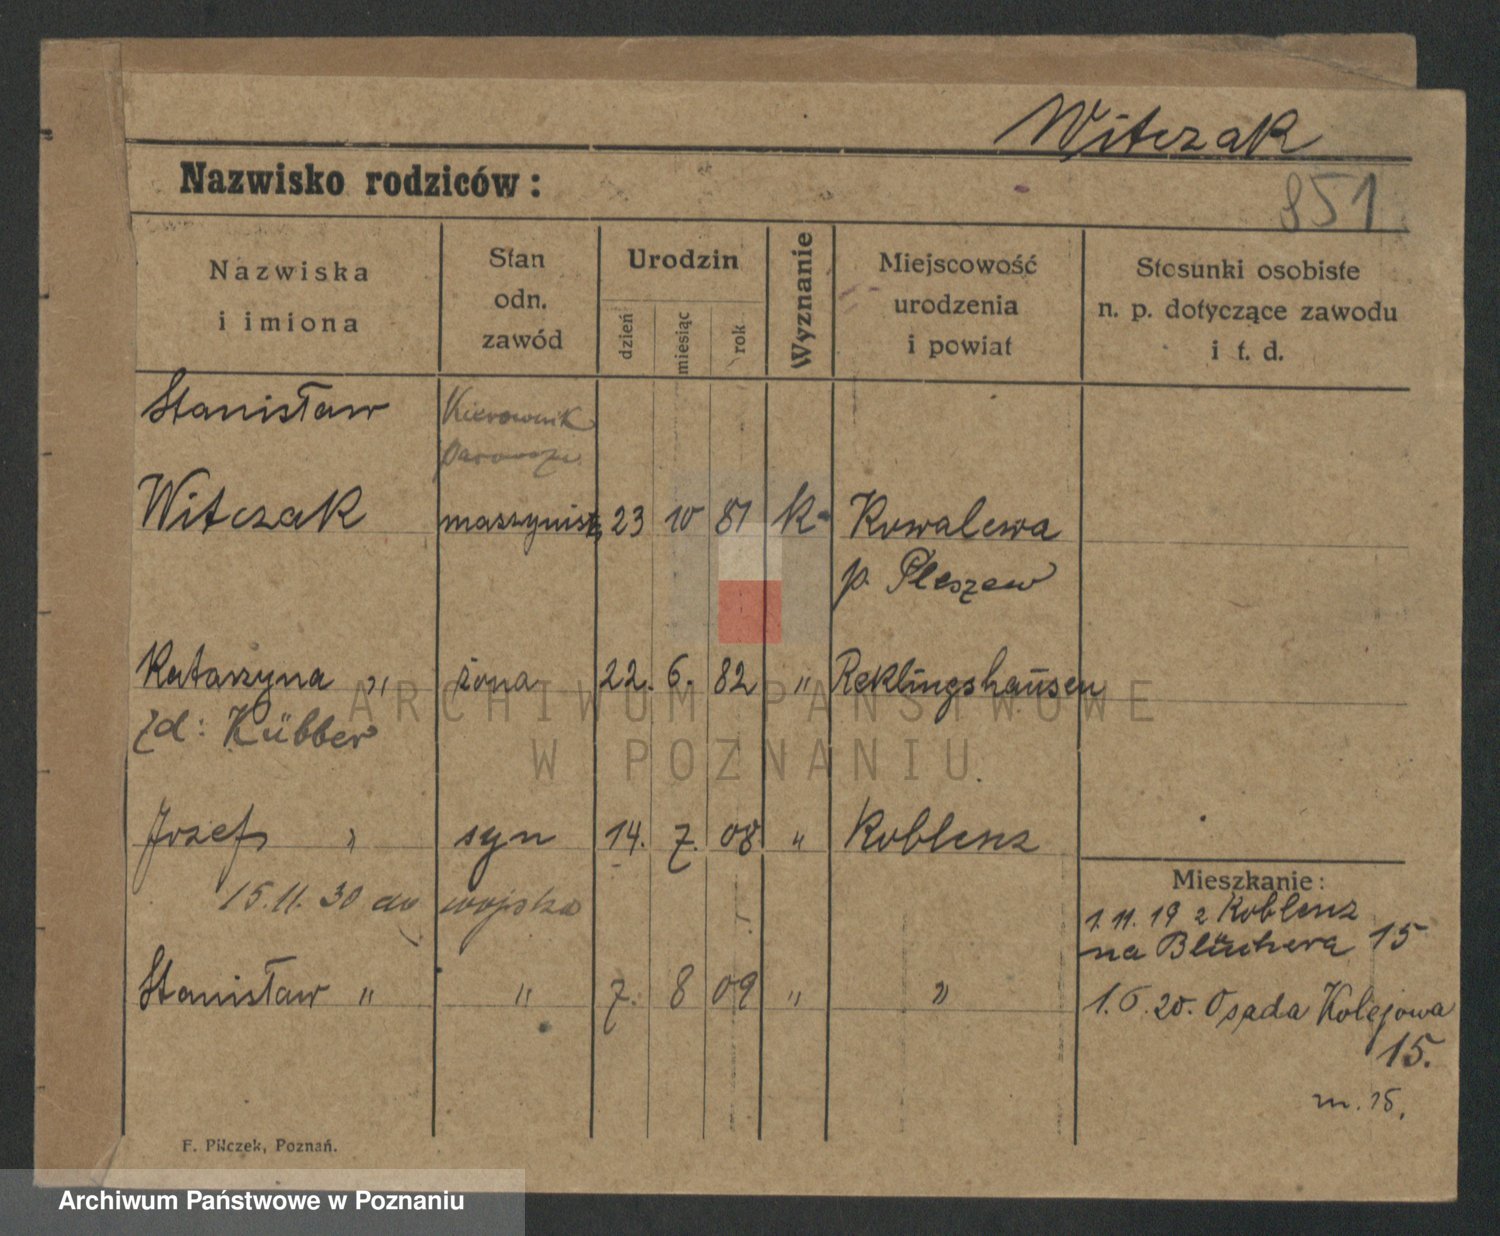 Witczak
Nazwisko rodziców:
851
Nazwiska
i imiona
Stan
odn.
zawód
Urodzin
dzień
miesiąc
rok
Wyznanie
Miejscowość
urodzenia
i powiat
Stosunki osobiste
n. p. dotyczące zawodu
i t. d.
Stanisław Kierownik
Witczak maszynista 23 10 81 k. Kowalewa
p. Pleszew
Katarzyna " żona 22. 6. 82 " Reklingshausen
zd: Kübber
Józef " syn 14. 7. 08 " Koblenz
15.11.30 do wojska
Stanisław " " 7. 8 09 " "
Mieszkanie:
1. 11. 19 z Koblenz
na Blüchera 15
1. 6. 20. Osada Kolejowa
15.
m. 15.
F. Pilczek, Poznań.
ARCHIWUM PAŃSTWOWE
W POZNANIU
Archiwum Państwowe w Poznaniu